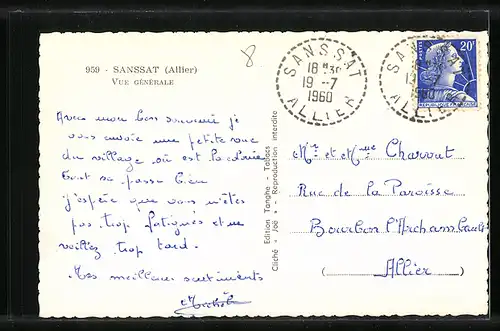 959 - SANSSAT (Allier)
VUE GÉNÉRALE
8
SANSSAT
18 H 30
19 -7
1960
ALLIER
SANSSAT
1960
ALLIER
20F
Avec mon bon souvenir je
vous envoie une petite vue
du village où est la colonie
tout se passe bien
j'espère que vous n'êtes
pas trop fatigués et ne
veillez trop tard.
Mes meilleurs sentiments
Michèle
Edition Tanghe - Tabacs
Cliché « Joë » Reproduction interdite
Mr et Mme Charvat
Rue de la Paroisse
Bourbon l'Archambault
( Allier )